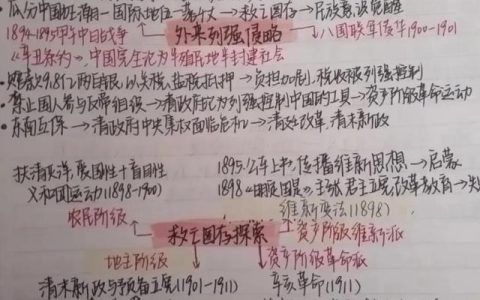 瓜分中国狂潮—国际地位一落千丈→救亡图存→民族意识觉醒
1894-1895甲午中日战争 外来列强侵略 八国联军侵华1900-1901
《辛丑条约》中国完全沦为半殖民地半封建社会
赔款9.8亿两白银,以关税、盐税抵押→负担加剧、税收被列强控制
禁止国人参与反帝组织→清政府沦为列强控制中国的工具→资产阶级革命运动
东南互保→清政府中央集权面临危机→清政府改革,清末新政
扶清灭洋,爱国性+盲目性 1895公车上书,传播维新思想→启蒙
义和团运动(1898-1900) 1898《明定国是》主张君主立宪,改革教育→失
农民阶级 维新变法(1898)
救亡图存探索 资产阶级维新派
地主阶级 资产阶级革命派
清末新政与预备立宪(1901-1911) 辛亥革命(1911)